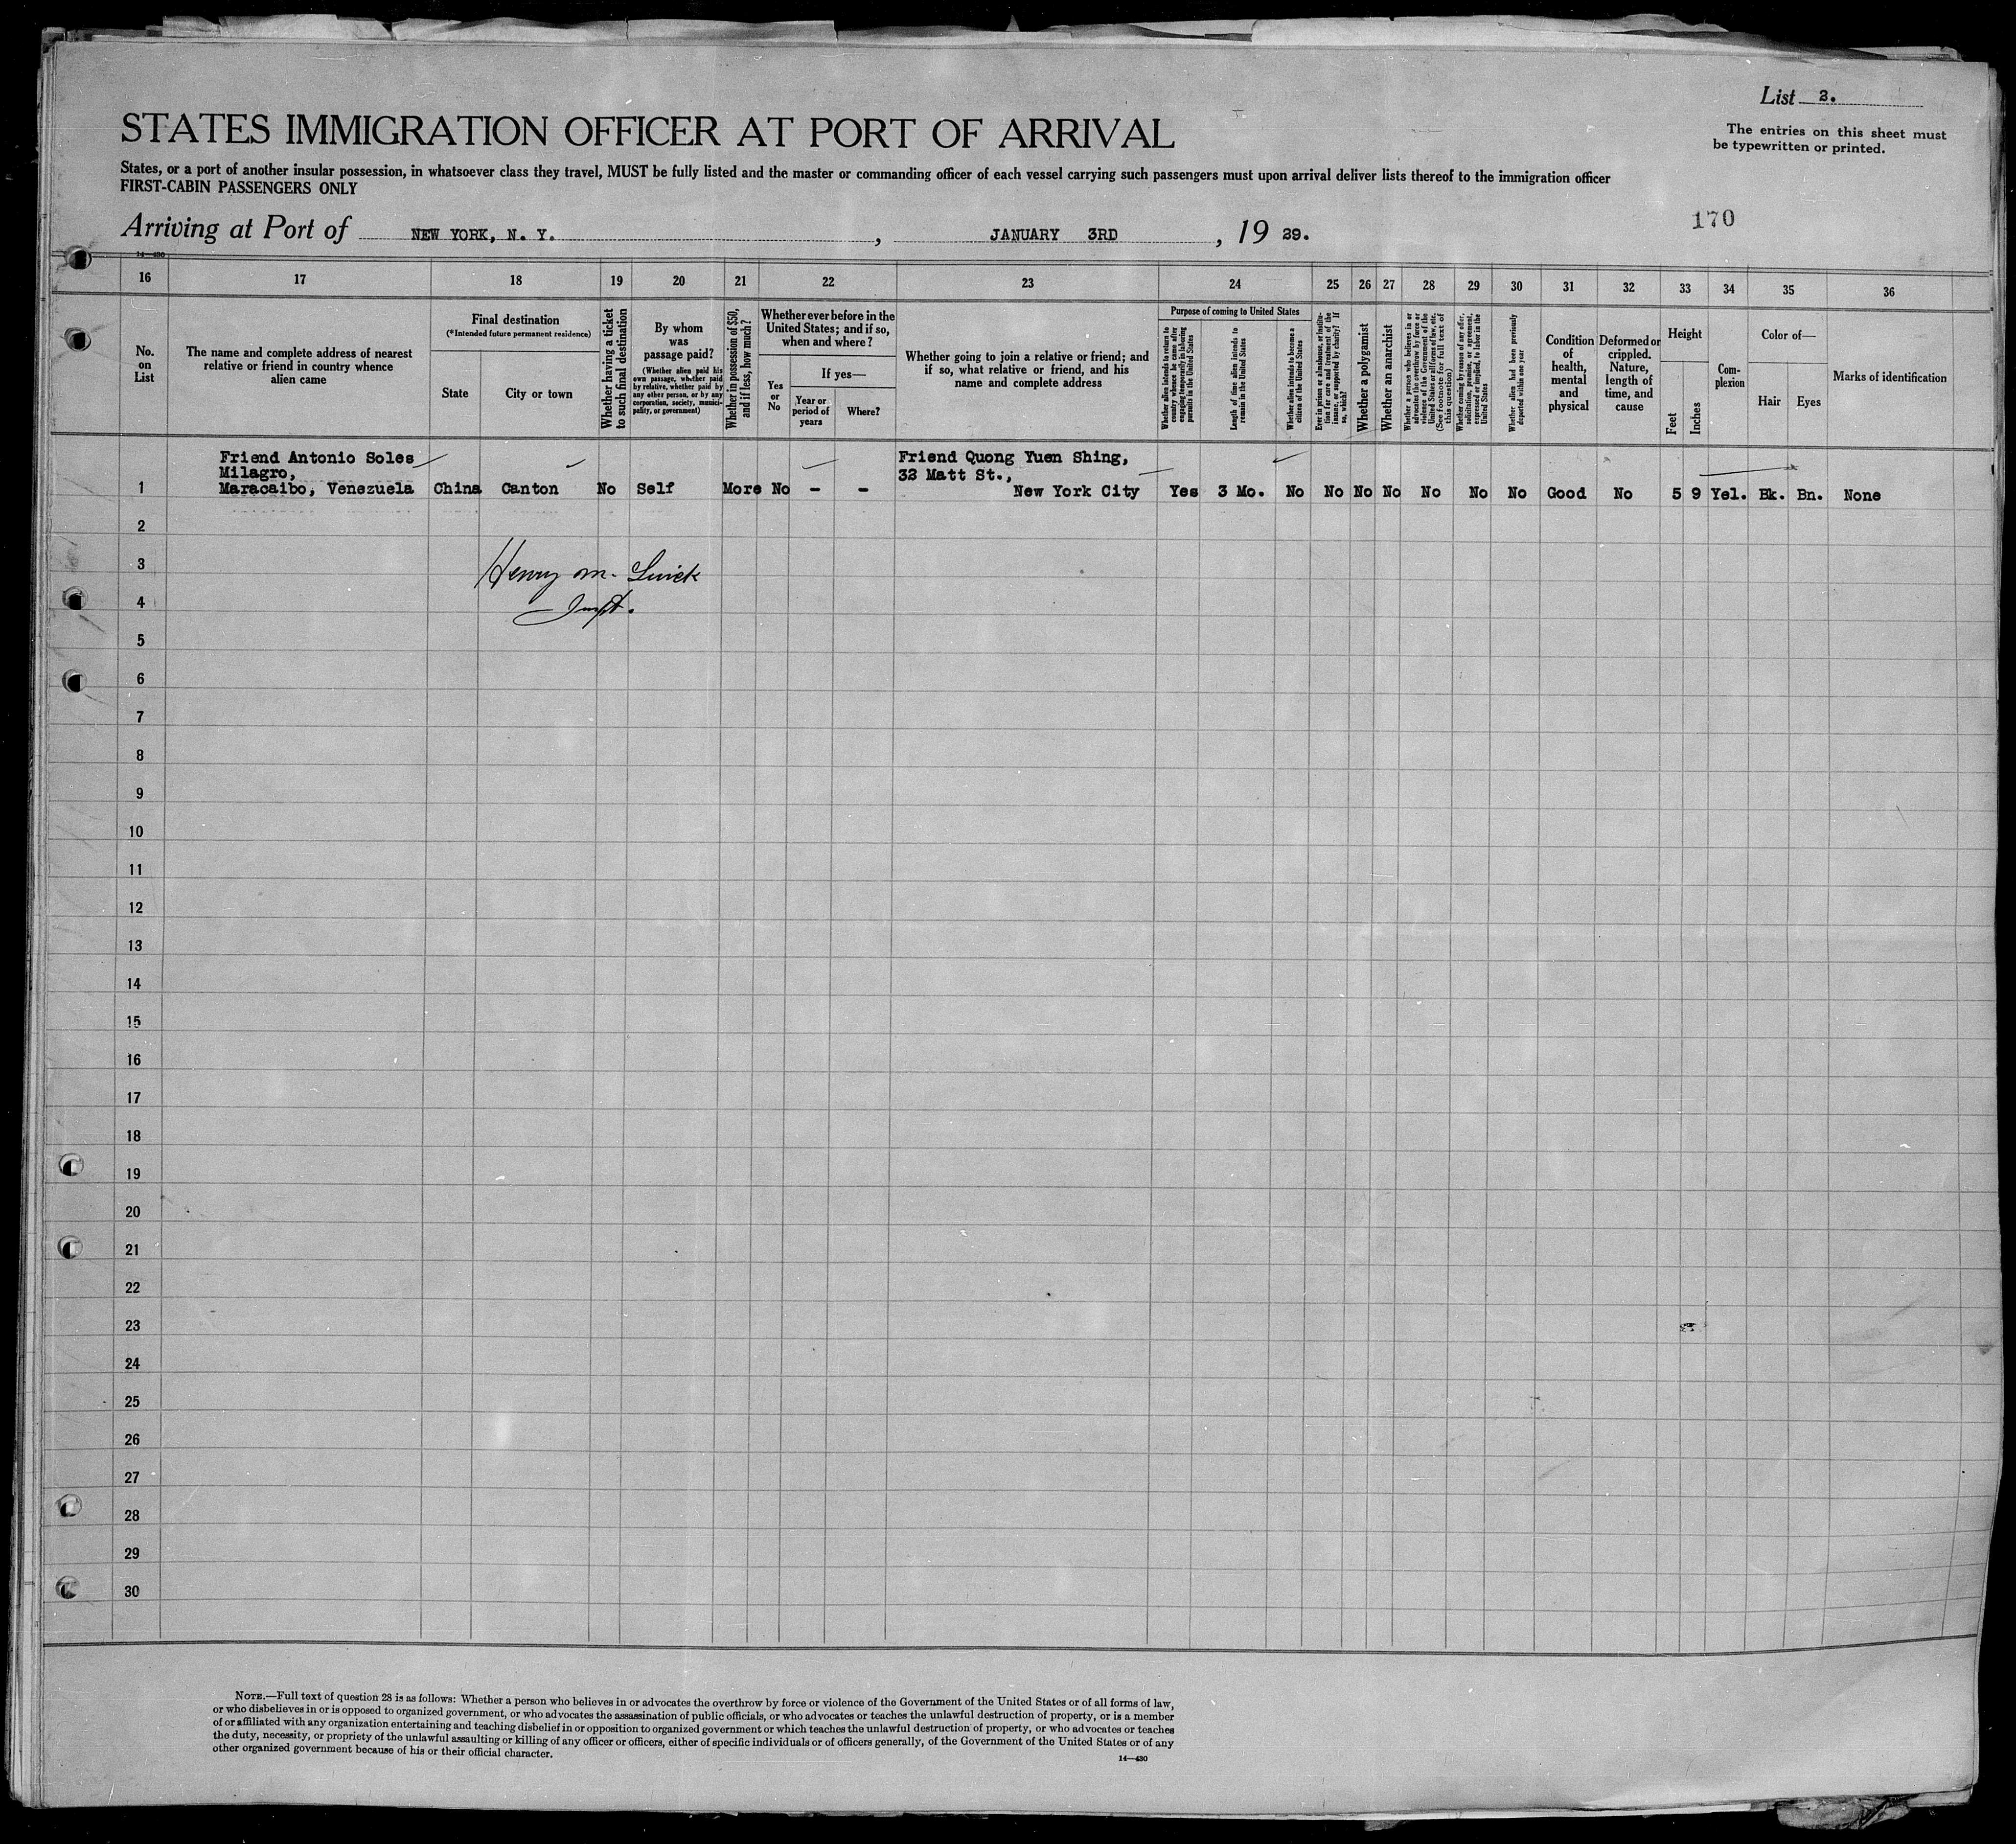 List 2.
STATES IMMIGRATION OFFICER AT PORT OF ARRIVAL
The entries on this sheet must
be typewritten or printed.
States, or a port of another insular possession, in whatsoever class they travel, MUST be fully listed and the master or commanding officer of each vessel carrying such passengers must upon arrival deliver lists thereof to the immigration officer
FIRST-CABIN PASSENGERS ONLY
170
Arriving at Port of NEW YORK, N. Y. , JANUARY 3RD , 19 29.
14—430
16 17 18 19 20 21 22 23 24 25 26 27 28 29 30 31 32 33 34 35 36
No.
on
List
The name and complete address of nearest
relative or friend in country whence
alien came
Final destination
(*Intended future permanent residence)
State
City or town
Whether having a ticket
to such final destination
By whom
was
passage paid?
(Whether alien paid his
own passage, whether paid
by relative, whether paid by
any other person, or by any
corporation, society, munici-
pality, or government)
Whether in possession of $50,
and if less, how much?
Whether ever before in the
United States; and if so,
when and where?
Yes
or
No
If yes—
Year or
period of
years
Where?
Whether going to join a relative or friend; and
if so, what relative or friend, and his
name and complete address
Purpose of coming to United States
Whether alien intends to return to
country whence he came after
engaging temporarily in laboring
pursuits in the United States
Length of time alien intends to
remain in the United States
Whether alien intends to become a
citizen of the United States
Ever in prison or almshouse, or institu-
tion for care and treatment of the
insane, or supported by charity? If
so, which?
Whether a polygamist
Whether an anarchist
Whether a person who believes in or
advocates the overthrow by force or
violence of the Government of the
United States or all forms of law, etc.
(See footnote for full text of
this question)
Whether coming by reason of any offer,
solicitation, promise, or agreement,
expressed or implied, to labor in the
United States
Whether alien had been previously
deported within one year
Condition
of
health,
mental
and
physical
Deformed or
crippled.
Nature,
length of
time, and
cause
Height
Feet
Inches
Com-
plexion
Color of—
Hair
Eyes
Marks of identification
Friend Antonio Soles
Milagro,
Friend Quong Yuen Shing,
32 Matt St.,
1 Maracaibo, Venezuela China Canton No Self More No - - New York City Yes 3 Mo. No No No No No No No Good No 5 9 Yel. Bk. Bn. None
2
3 Henry M.
4 Inspt.
5
6
7
8
9
10
11
12
13
14
15
16
17
18
19
20
21
22
23
24
25
26
27
28
29
30
NOTE.—Full text of question 28 is as follows: Whether a person who believes in or advocates the overthrow by force or violence of the Government of the United States or of all forms of law,
or who disbelieves in or is opposed to organized government, or who advocates the assassination of public officials, or who advocates or teaches the unlawful destruction of property, or is a member
of or affiliated with any organization entertaining and teaching disbelief in or opposition to organized government or which teaches the unlawful destruction of property, or who advocates or teaches
the duty, necessity, or propriety of the unlawful assaulting or killing of any officer or officers, either of specific individuals or of officers generally, of the Government of the United States or of any
other organized government because of his or their official character.
14—430